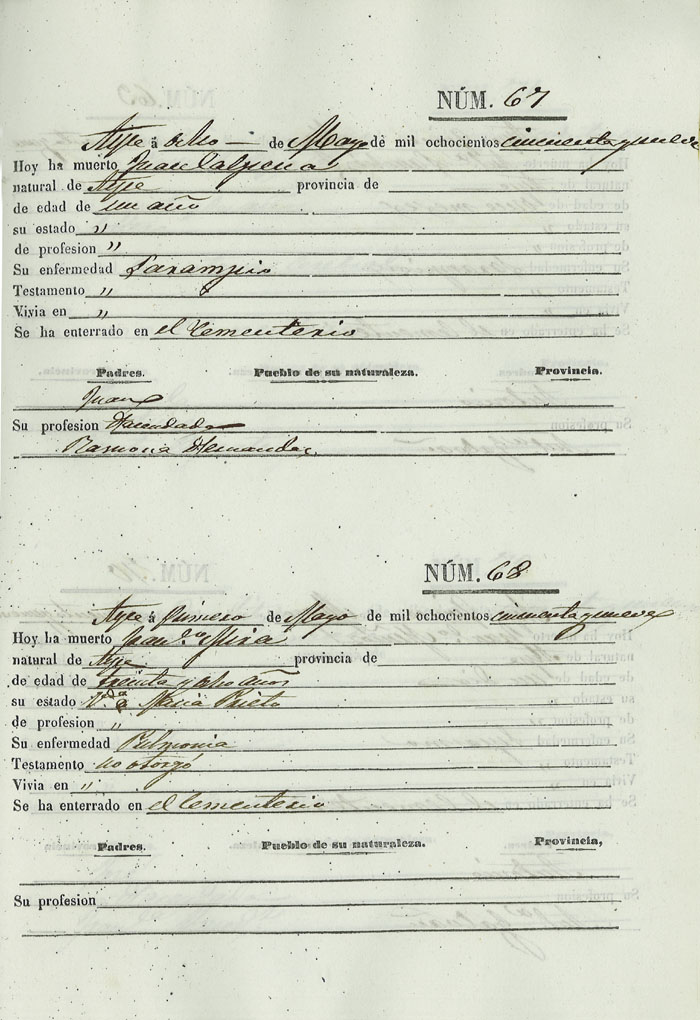 NÚM. 67
Aspe á ocho — de Mayo de mil ochocientos cincuenta y nueve
Hoy ha muerto Juan Calpena
natural de Aspe provincia de
de edad de un año
su estado "
de profesion "
Su enfermedad Sarampio
Testamento "
Vivia en "
Se ha enterrado en el Cementerio
Padres. Pueblo de su naturaleza. Provincia.
Juan
Su profesion Hacendado
Ramona Hernandez
NÚM. 68
Aspe á Primero de Mayo de mil ochocientos cincuenta y nueve
Hoy ha muerto Mira
natural de Aspe provincia de
de edad de treinta y ocho años
su estado Maria Prieto
de profesion "
Su enfermedad Pulmonia
Testamento no otorgó
Vivia en "
Se ha enterrado en el Cementerio
Padres. Pueblo de su naturaleza. Provincia,
Su profesion